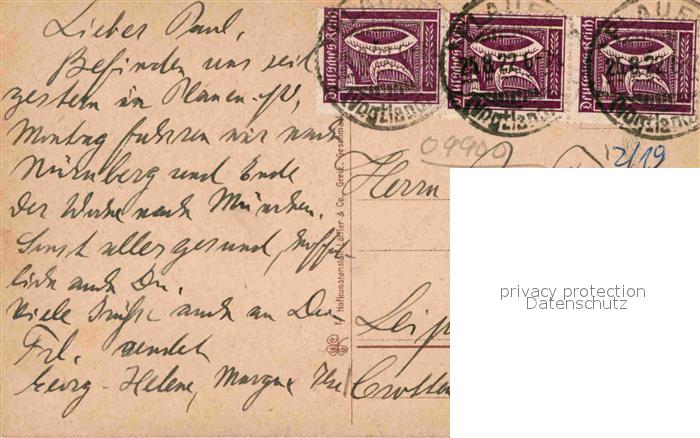 Lieber Paul,
Befinden uns seit
gestern in Plauen i/V,
Montag fahren wir nach
Nürnberg und Ende
der Woche nach München.
Sonst alles gesund, hoffent-
lich auch Du.
Viele Grüße auch an Dein
Frl. sendet
Georg - Helene,
Deutsches Reich
Deutsches Reich
Deutsches Reich
PLAUEN
25.8.22
(Vogtland)
09900
12/19
Herrn
Leip
Crotten
Hofkunstanstalt Löffler & Co. Greiz.
privacy protection
Datenschutz